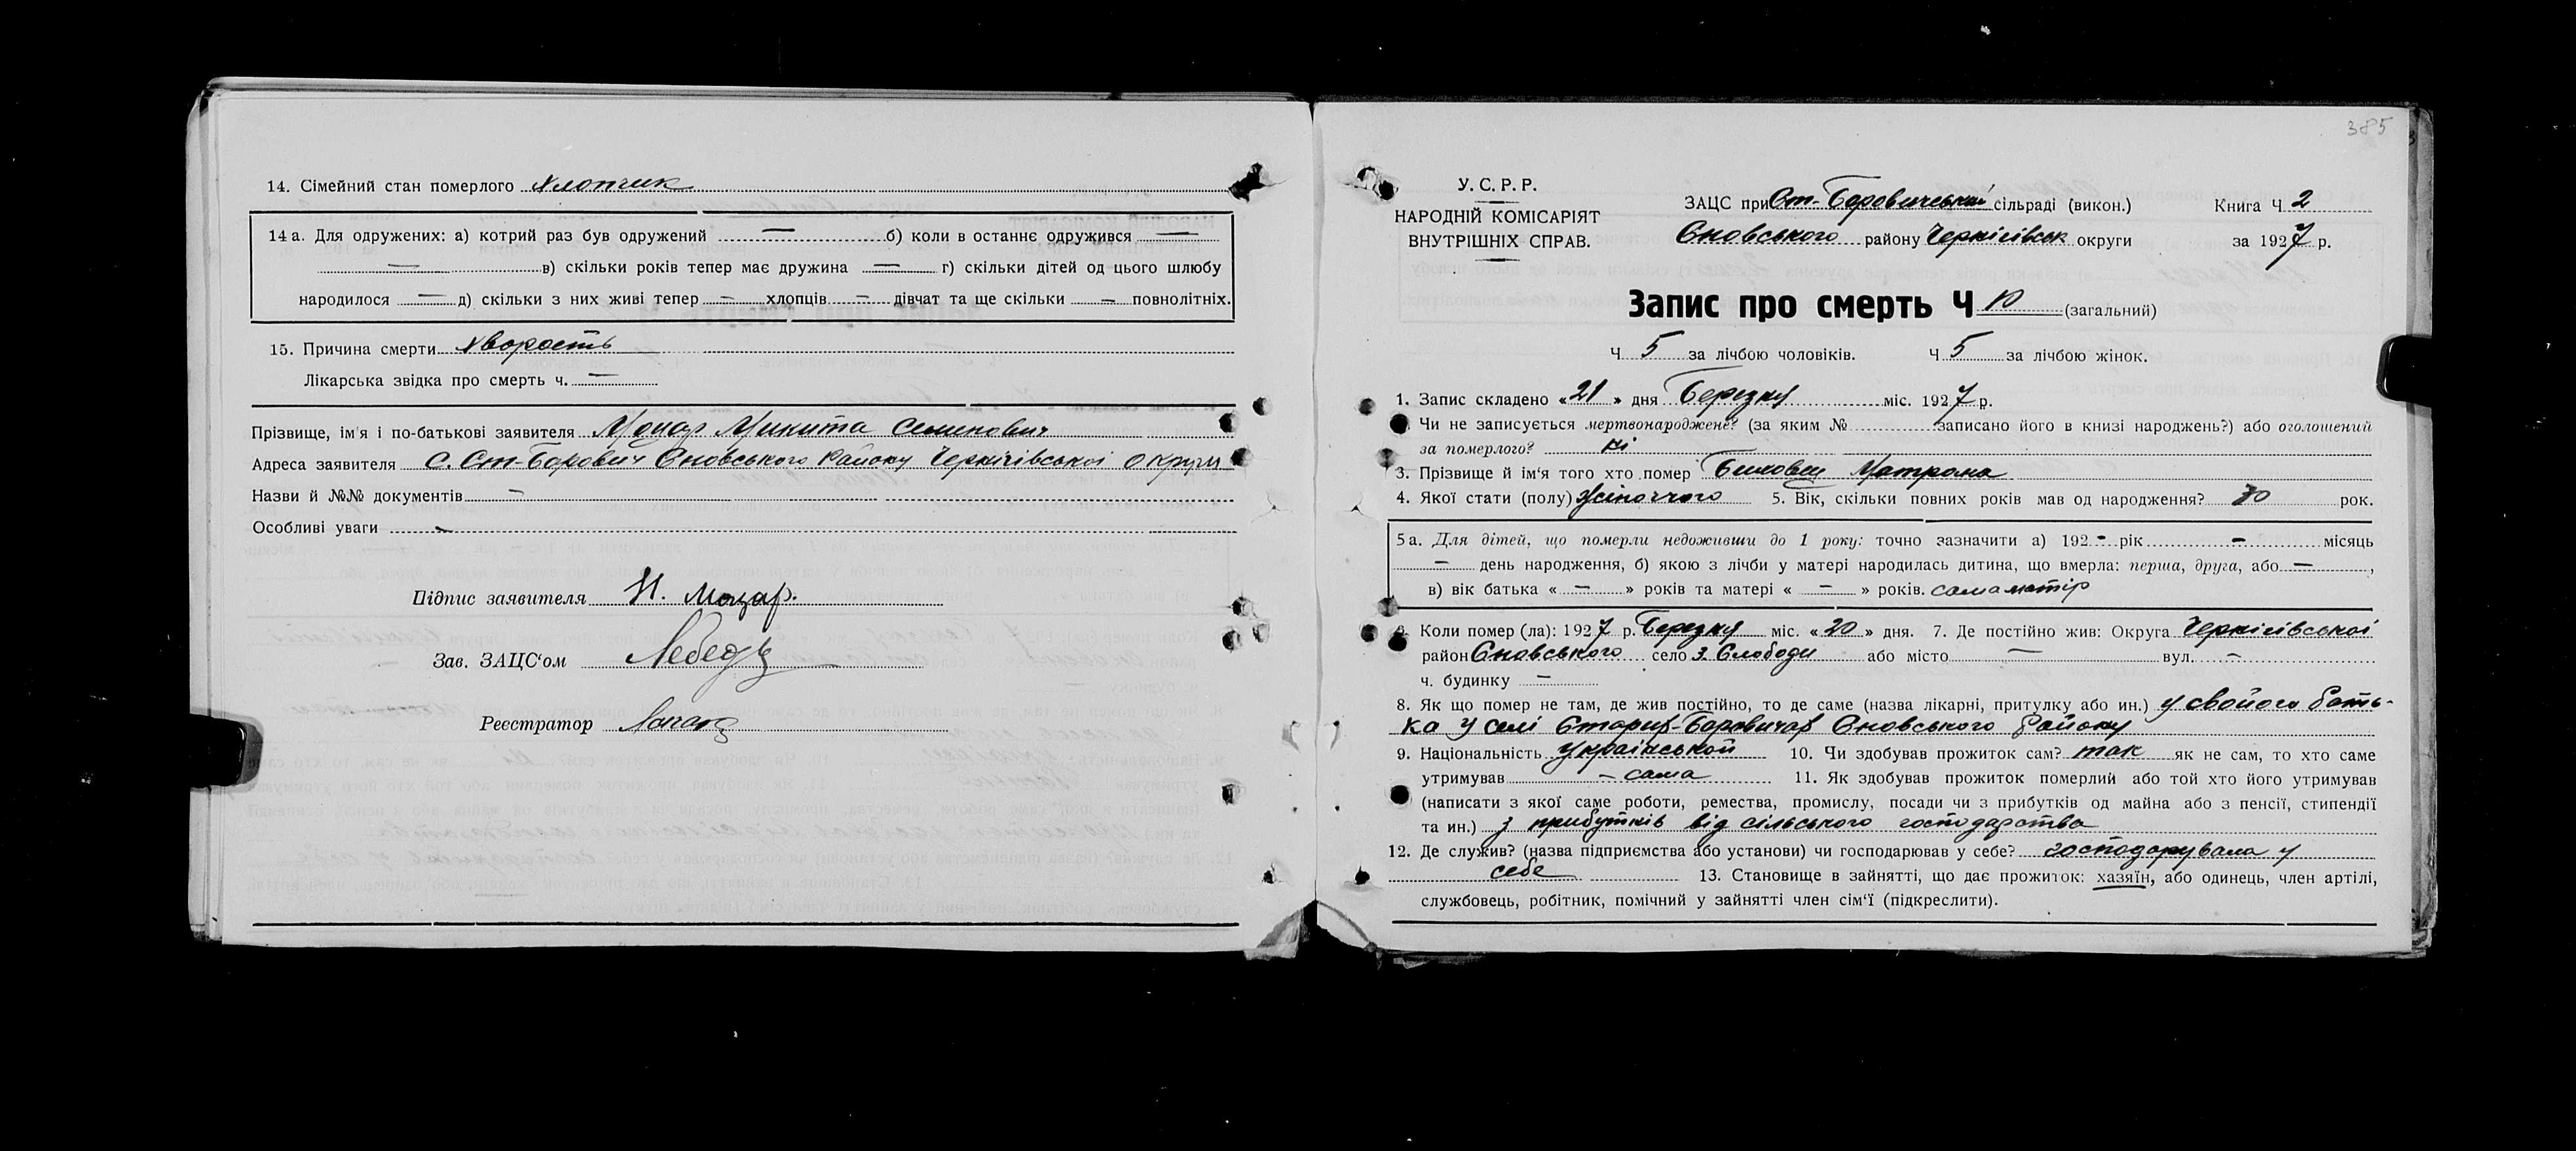 14. Сімейний стан померлого хлопчик
14 а. Для одружених: а) котрий раз був одружений — б) коли в останнє одружився —
— в) скільки років тепер має дружина — г) скільки дітей од цього шлюбу
народилося — д) скільки з них живі тепер — хлопців — дівчат та ще скільки — повнолітніх.
15. Причина смерти хворость
Лікарська звідка про смерть ч. —
Прізвище, ім'я і по-батькові заявителя Моцар Микита Семенович
Адреса заявителя с. Ст-Борович Сновського Району Чернігівської округи
Назви й №№ документів —
Особливі уваги —
Підпис заявителя Н. Моцар.
Зав. ЗАЦС'ом Лебедь
Реєстратор
385
У. С. Р. Р.
НАРОДНІЙ КОМІСАРІЯТ
ВНУТРІШНІХ СПРАВ.
ЗАЦС при Ст-Боровичській сільраді (викон.) Книга Ч 2
Сновського району Чернігівськ округи за 1927 р.
Запис про смерть Ч 10 (загальний)
Ч 5 за лічбою чоловіків. Ч 5 за лічбою жінок.
1. Запис складено «21» дня Березня міс. 1927 р.
Чи не записується мертвонароджене? (за яким № записано його в книзі народжень?) або оголошений
за померлого? ні
3. Прізвище й ім'я того хто помер Мотрона
4. Якої стати (полу) жіночого 5. Вік, скільки повних років мав од народження? рок.
5 а. Для дітей, що померли недоживши до 1 року: точно зазначити а) 192 - рік — місяць
— день народження, б) якою з лічби у матері народилась дитина, що вмерла: перша, друга, або —,
в) вік батька « — » років та матері « — » років. сама матір
6. Коли помер (ла): 1927 р. Березня міс. «20» дня. 7. Де постійно жив: Округа Чернігівської
район Сновського село З. Слободи або місто — вул. —
ч. будинку —
8. Як що помер не там, де жив постійно, то де саме (назва лікарні, притулку або ин.) у свойого бать-
ка у селі Старих-Боровичах Сновського Району
9. Національність Українськой 10. Чи здобував прожиток сам? так як не сам, то хто саме
утримував — сама 11. Як здобував прожиток померлий або той хто його утримував
(написати з якої саме роботи, ремества, промислу, посади чи з прибутків од майна або з пенсії, стипендії
та ин.) з прибутків від сільського господарства
12. Де служив? (назва підприємства або установи) чи господарював у себе? господарувала у
себе 13. Становище в зайнятті, що дає прожиток: хазяїн, або одинець, член артілі,
службовець, робітник, помічний у зайнятті член сім'ї (підкреслити).